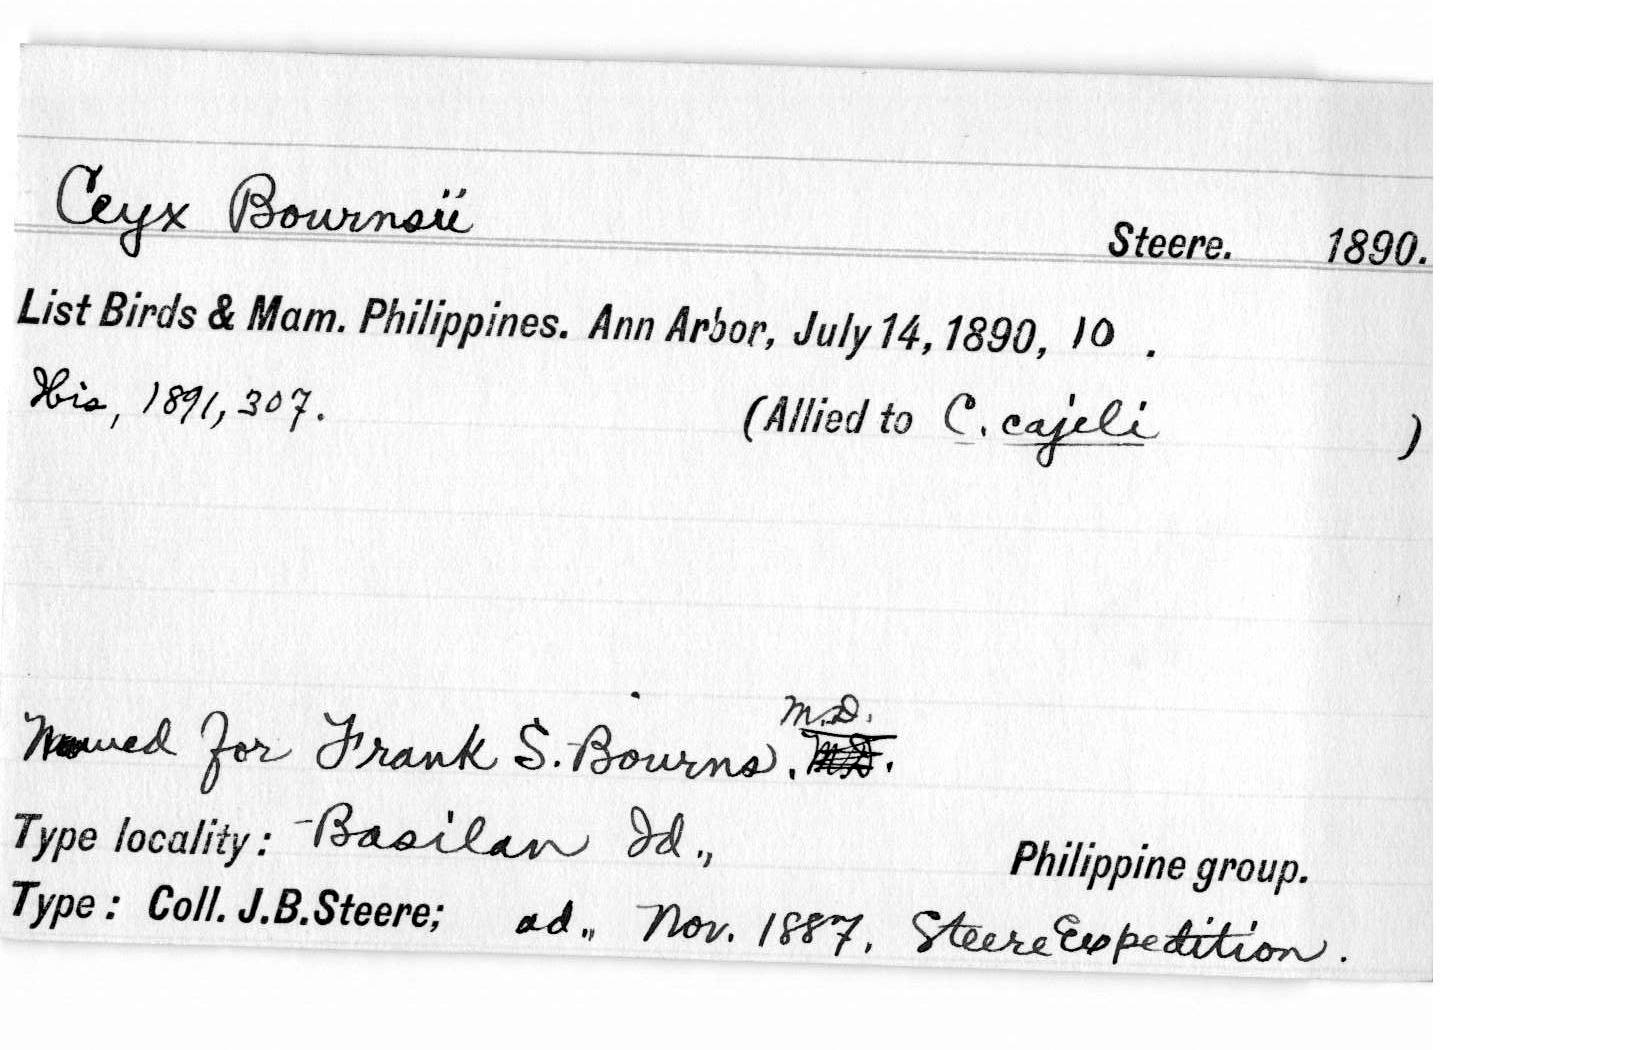 Ceyx Bournsii Steere. 1890.
List Birds & Mam. Philippines. Ann Arbor, July 14, 1890, 10 .
Ibis, 1891, 307. (Allied to C. cajeli )
M.D.
Named for Frank S. Bourns. M.D.
Type locality: Basilan Id., Philippine group.
Type: Coll. J.B. Steere; ad., Nov. 1887, Steere Expedition.